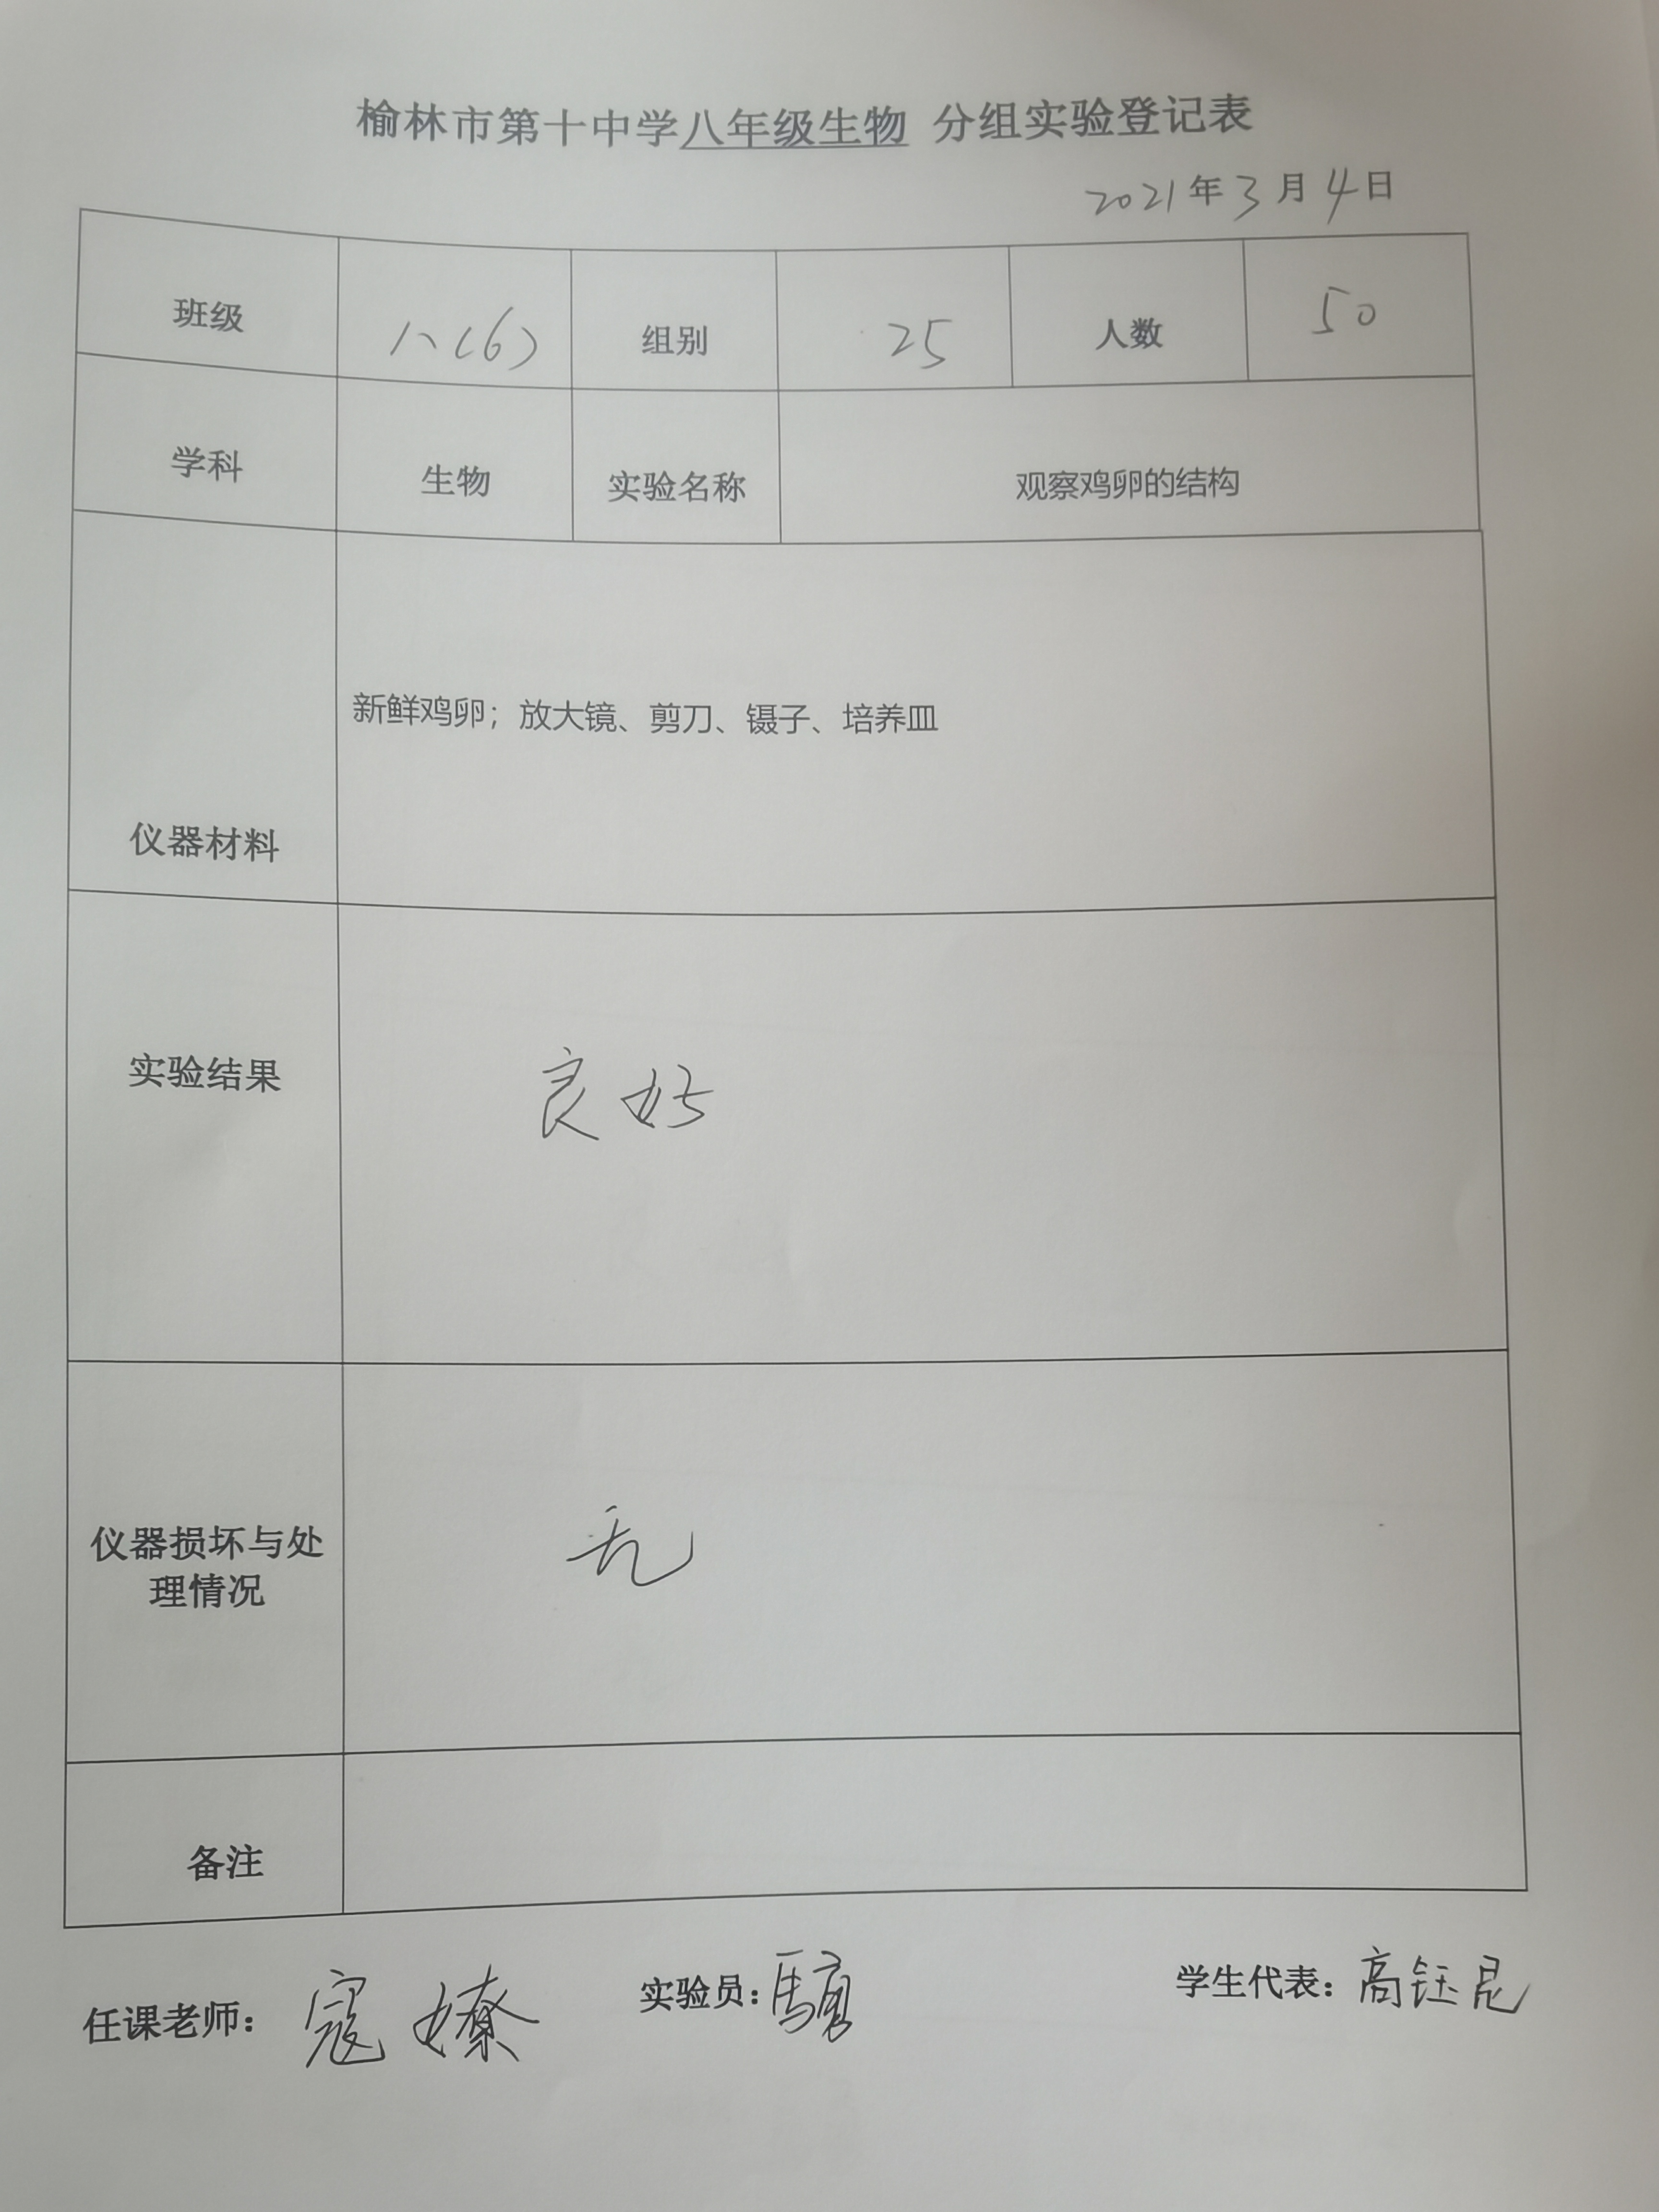 榆林市第十中学八年级生物 分组实验登记表
2021年3月4日
班级 八(6) 组别 25 人数 50
学科 生物 实验名称 观察鸡卵的结构
仪器材料 新鲜鸡卵；放大镜、剪刀、镊子、培养皿
实验结果 良好
仪器损坏与处
理情况 无
备注
任课老师： 寇嫽 实验员: 学生代表: 高钰昆